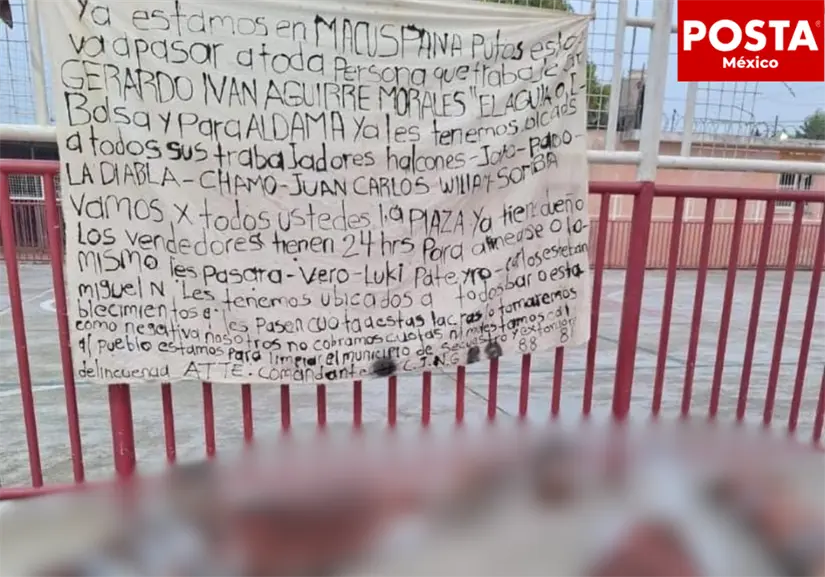 POSTA
México
Ya estamos en MACUSPANA Putos esto
va a pasar a toda Persona que trabaje
GERARDO IVAN AGUIRRE MORALES "EL AGUILA O EL
Bolsa y Para ALDAMA Ya les tenemos
a todos sus trabajadores halcones-Joto-
LA DIABLA-CHAMO-JUAN CARLOS WILLIAT-SOMBA
Vamos x todos ustedes la PLAZA Ya tien dueño
Los vendedores tienen 24 hrs Para alinease o lo
mismo les Pasara-Vero-Luki Pate yro-carlos esteban
miguel N. Les tenemos ubicados a todos bar o esta
blecimientos q. les Pasen cuota a estas lacras lo tomaremos
como negativa nosotros no cobramos cuotas ni molestamos
al pueblo estamos para limpiar el municipio de secuestro y extorsion
delincuencia ATTE. comandante C.J.N.G 88 8